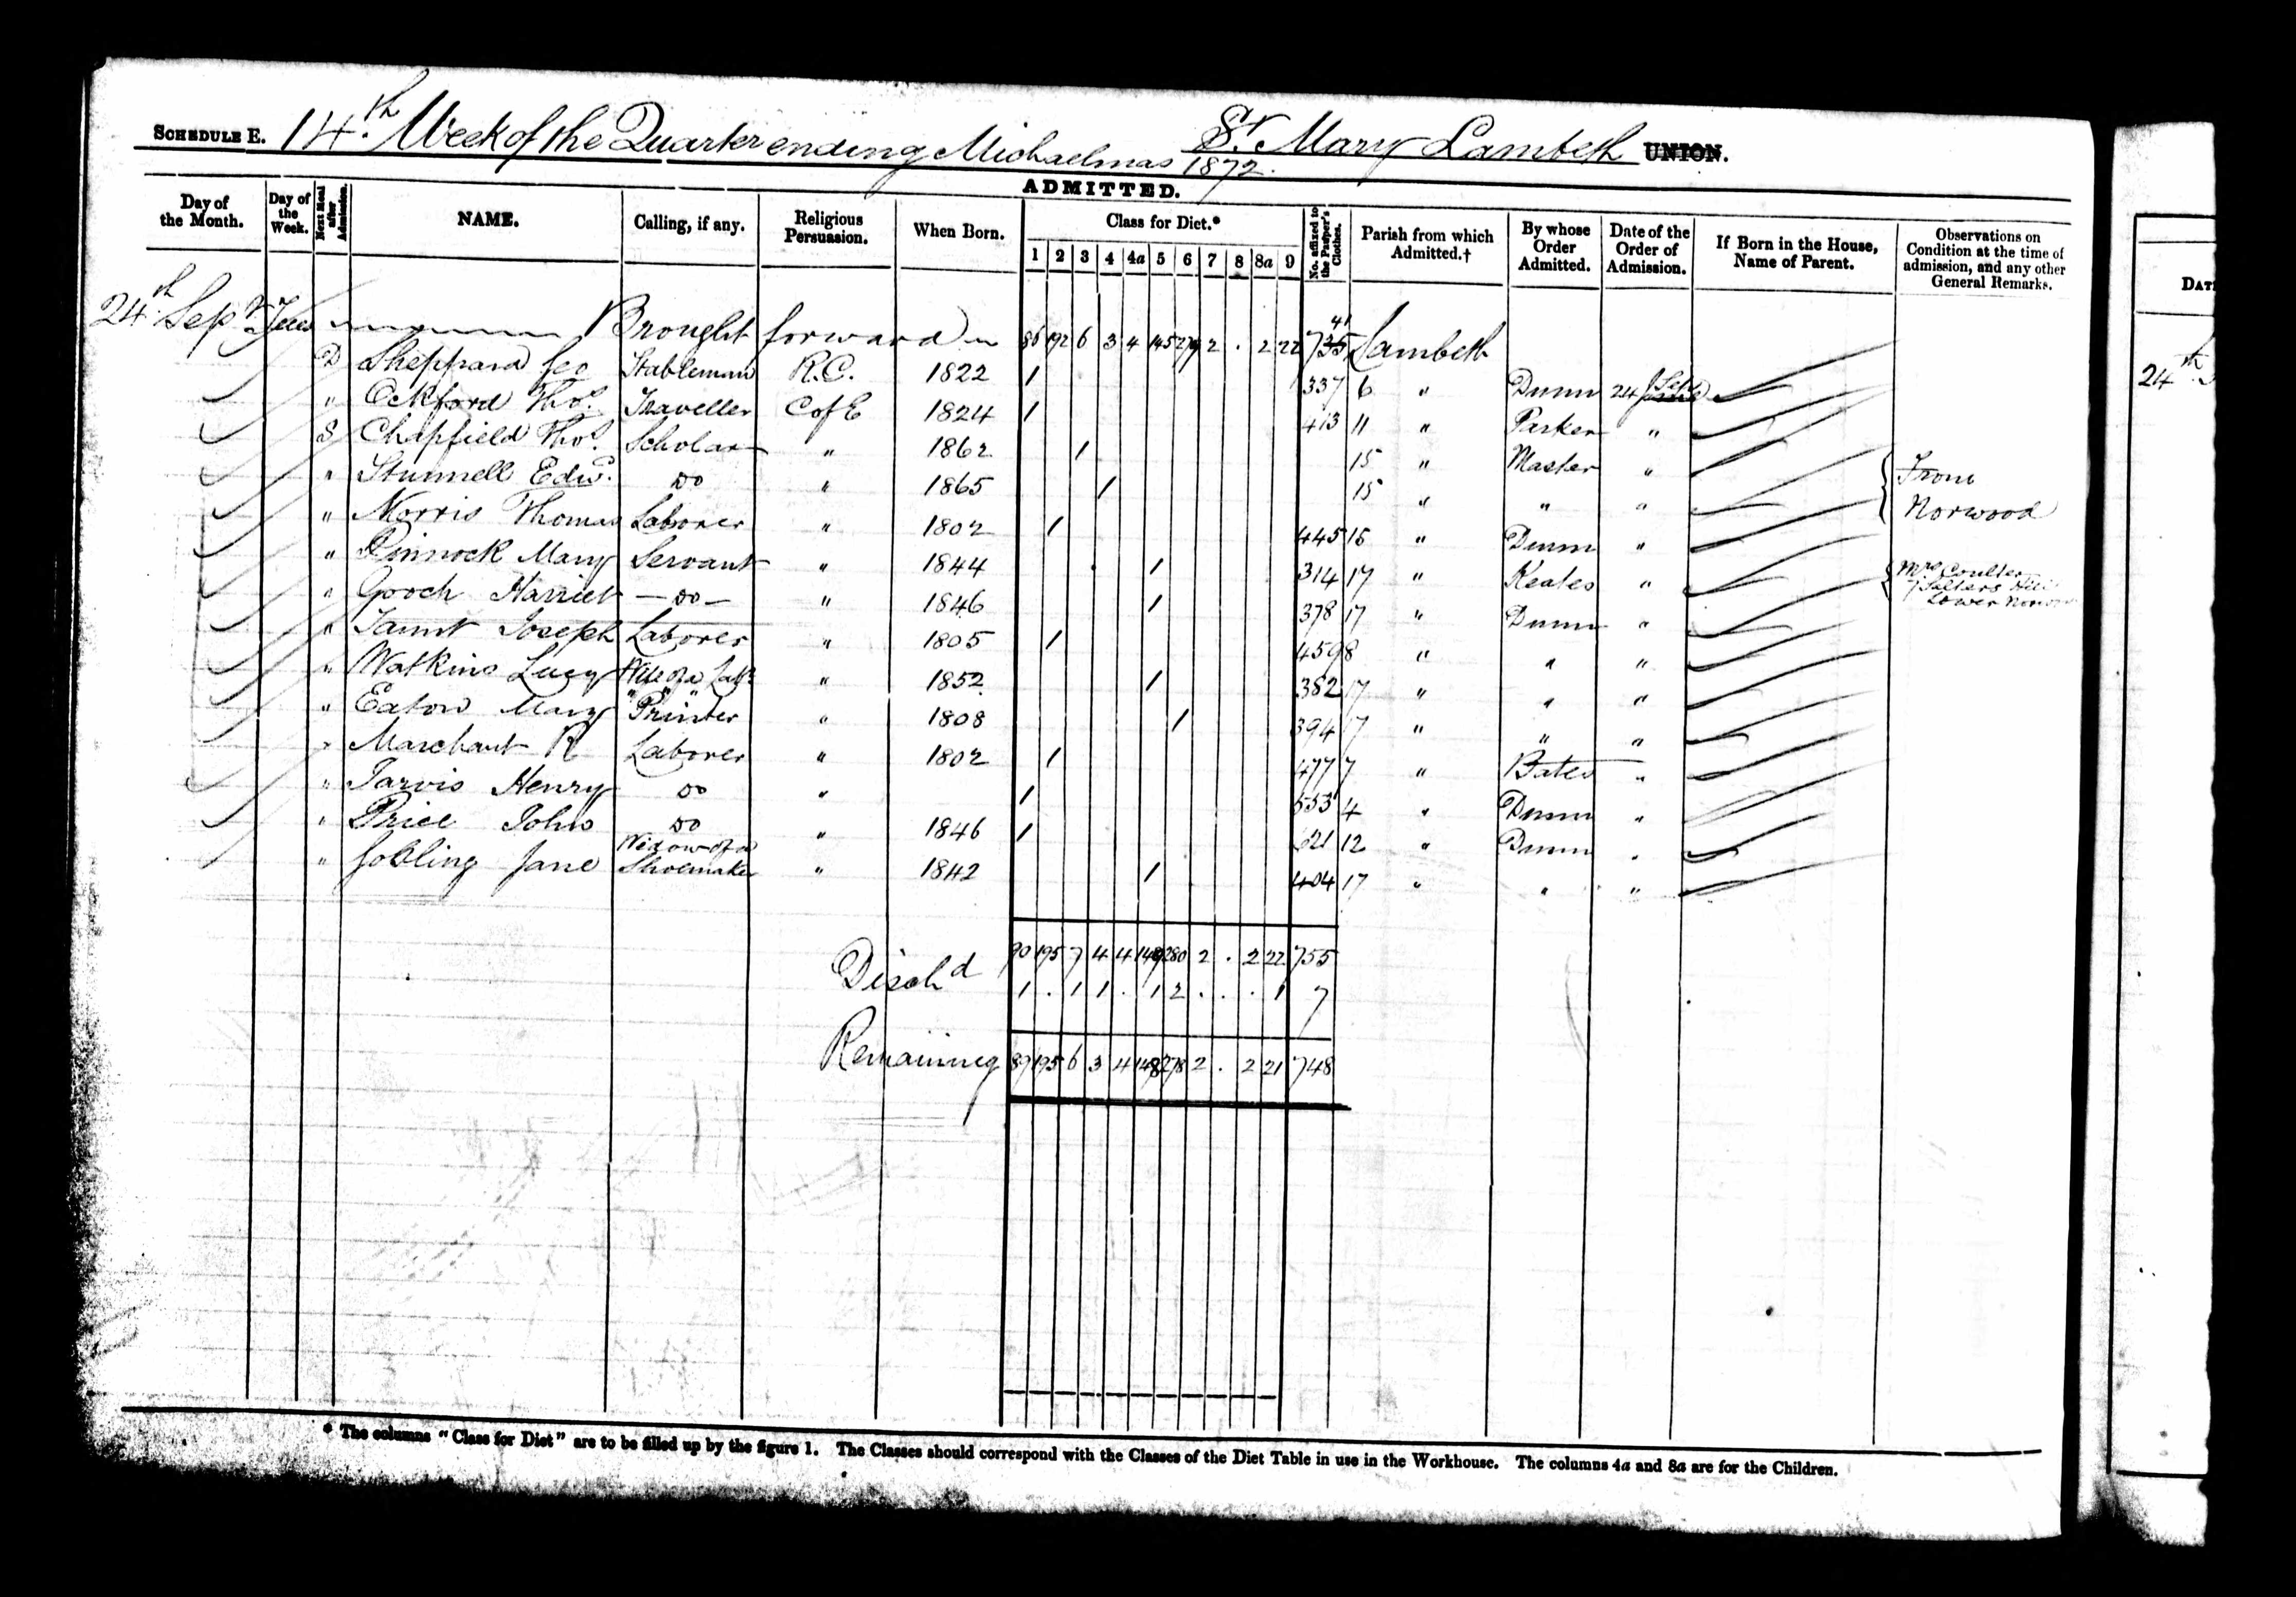 SCHEDULE E. 14.th Week of the Quarter ending Michaelmas 1872. St. Mary Lambeth UNION.
ADMITTED.
Day of the Month. Day of the Week. Next Meal after Admission. NAME. Calling, if any. Religious Persuasion. When Born. Class for Diet.* No. affixed to the Pauper's Clothes. Parish from which Admitted.† By whose Order Admitted. Date of the Order of Admission. If Born in the House, Name of Parent. Observations on Condition at the time of admission, and any other General Remarks.
1 2 3 4 4a 5 6 7 8 8a 9
24th Sepr Tues Brought forward 86 192 6 3 4 145 279 2 . 2 22 735 41 Lambeth
D Sheppard Geo Stableman R.C. 1822 1 337 6 " Dunn 24 Sept
" Ockford Thos. Traveller C of E 1824 1 413 11 " Parker "
S Chapfield Thos. Scholar " 1862 1 15 " Master "
" Stunnell Edwd. Do " 1865 1 15 " " " { From Norwood
" Morris Thomas Laborer " 1802 1 445 16 " Dunn "
" Pinnock Mary Servant " 1844 1 314 17 " Keates " { Mrs Coulter 7 Salters Hill Lower Norwood
" Gooch Harriet — Do — " 1846 1 378 17 " Dunn "
" Taunt Joseph Laborer " 1805 1 459 8 " " "
" Watkins Lucy Wife of a Labr " 1852 1 382 17 " " "
" Eaton Mary " " " Printer " 1808 1 394 17 " " "
" Marchant R Laborer " 1802 1 477 7 " Bates "
" Jarvis Henry Do " 1 553 4 " Dunn "
" Price John Do " 1846 1 621 12 " Dunn "
" Gobling Jane Widow of a Shoemaker " 1842 1 404 17 " " "
90 195 7 4 4 149 280 2 . 2 22 755
Disch d 1 . 1 1 . 1 2 . . . 1 7
Remaining 89 195 6 3 4 148 278 2 . 2 21 748
* The columns "Class for Diet" are to be filled up by the figure 1. The Classes should correspond with the Classes of the Diet Table in use in the Workhouse. The columns 4a and 8a are for the Children.
DAT
24th S